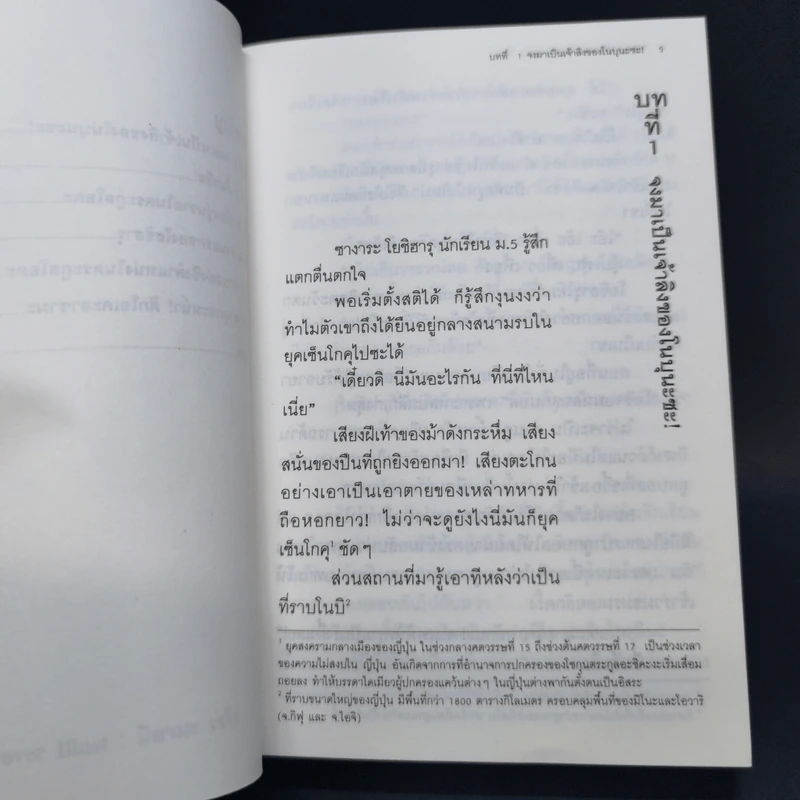 บทที่ 1 จงมาเป็นเจ้าลิงของโนบุนะซะ! 5
บทที่ 1 จงมาเป็นเจ้าลิงของโนบุนะซะ!
ซางาระ โยชิฮารุ นักเรียน ม.5 รู้สึก
แตกตื่นตกใจ
พอเริ่มตั้งสติได้ ก็รู้สึกงุนงงว่า
ทำไมตัวเขาถึงได้ยืนอยู่กลางสนามรบใน
ยุคเซ็นโกคุไปซะได้
“เดี๋ยวดิ นี่มันอะไรกัน ที่นี่ที่ไหน
เนี่ย”
เสียงฝีเท้าของม้าดังกระหึ่ม เสียง
สนั่นของปืนที่ถูกยิงออกมา! เสียงตะโกน
อย่างเอาเป็นเอาตายของเหล่าทหารที่
ถือหอกยาว! ไม่ว่าจะดูยังไงนี่มันก็ยุค
เซ็นโกคุ¹ ชัดๆ
ส่วนสถานที่มารู้เอาทีหลังว่าเป็น
ที่ราบโนบิ²
¹ ยุคสงครามกลางเมืองของญี่ปุ่น ในช่วงกลางศตวรรษที่ 15 ถึงช่วงต้นศตวรรษที่ 17 เป็นช่วงเวลา
ของความไม่สงบใน ญี่ปุ่น อันเกิดจากการที่อำนาจการปกครองของโชกุนตระกูลอะชิคะงะเริ่มเสื่อม
ถอยลง ทำให้บรรดาไดเมียวผู้ปกครองแคว้นต่างๆ ในญี่ปุ่นต่างพากันตั้งตนเป็นอิสระ
² ที่ราบขนาดใหญ่ของญี่ปุ่น มีพื้นที่กว่า 1800 ตารางกิโลเมตร ครอบคลุมพื้นที่ของมิโนะและโอวาริ
(จ.กิฟุ และ จ.ไอจิ)